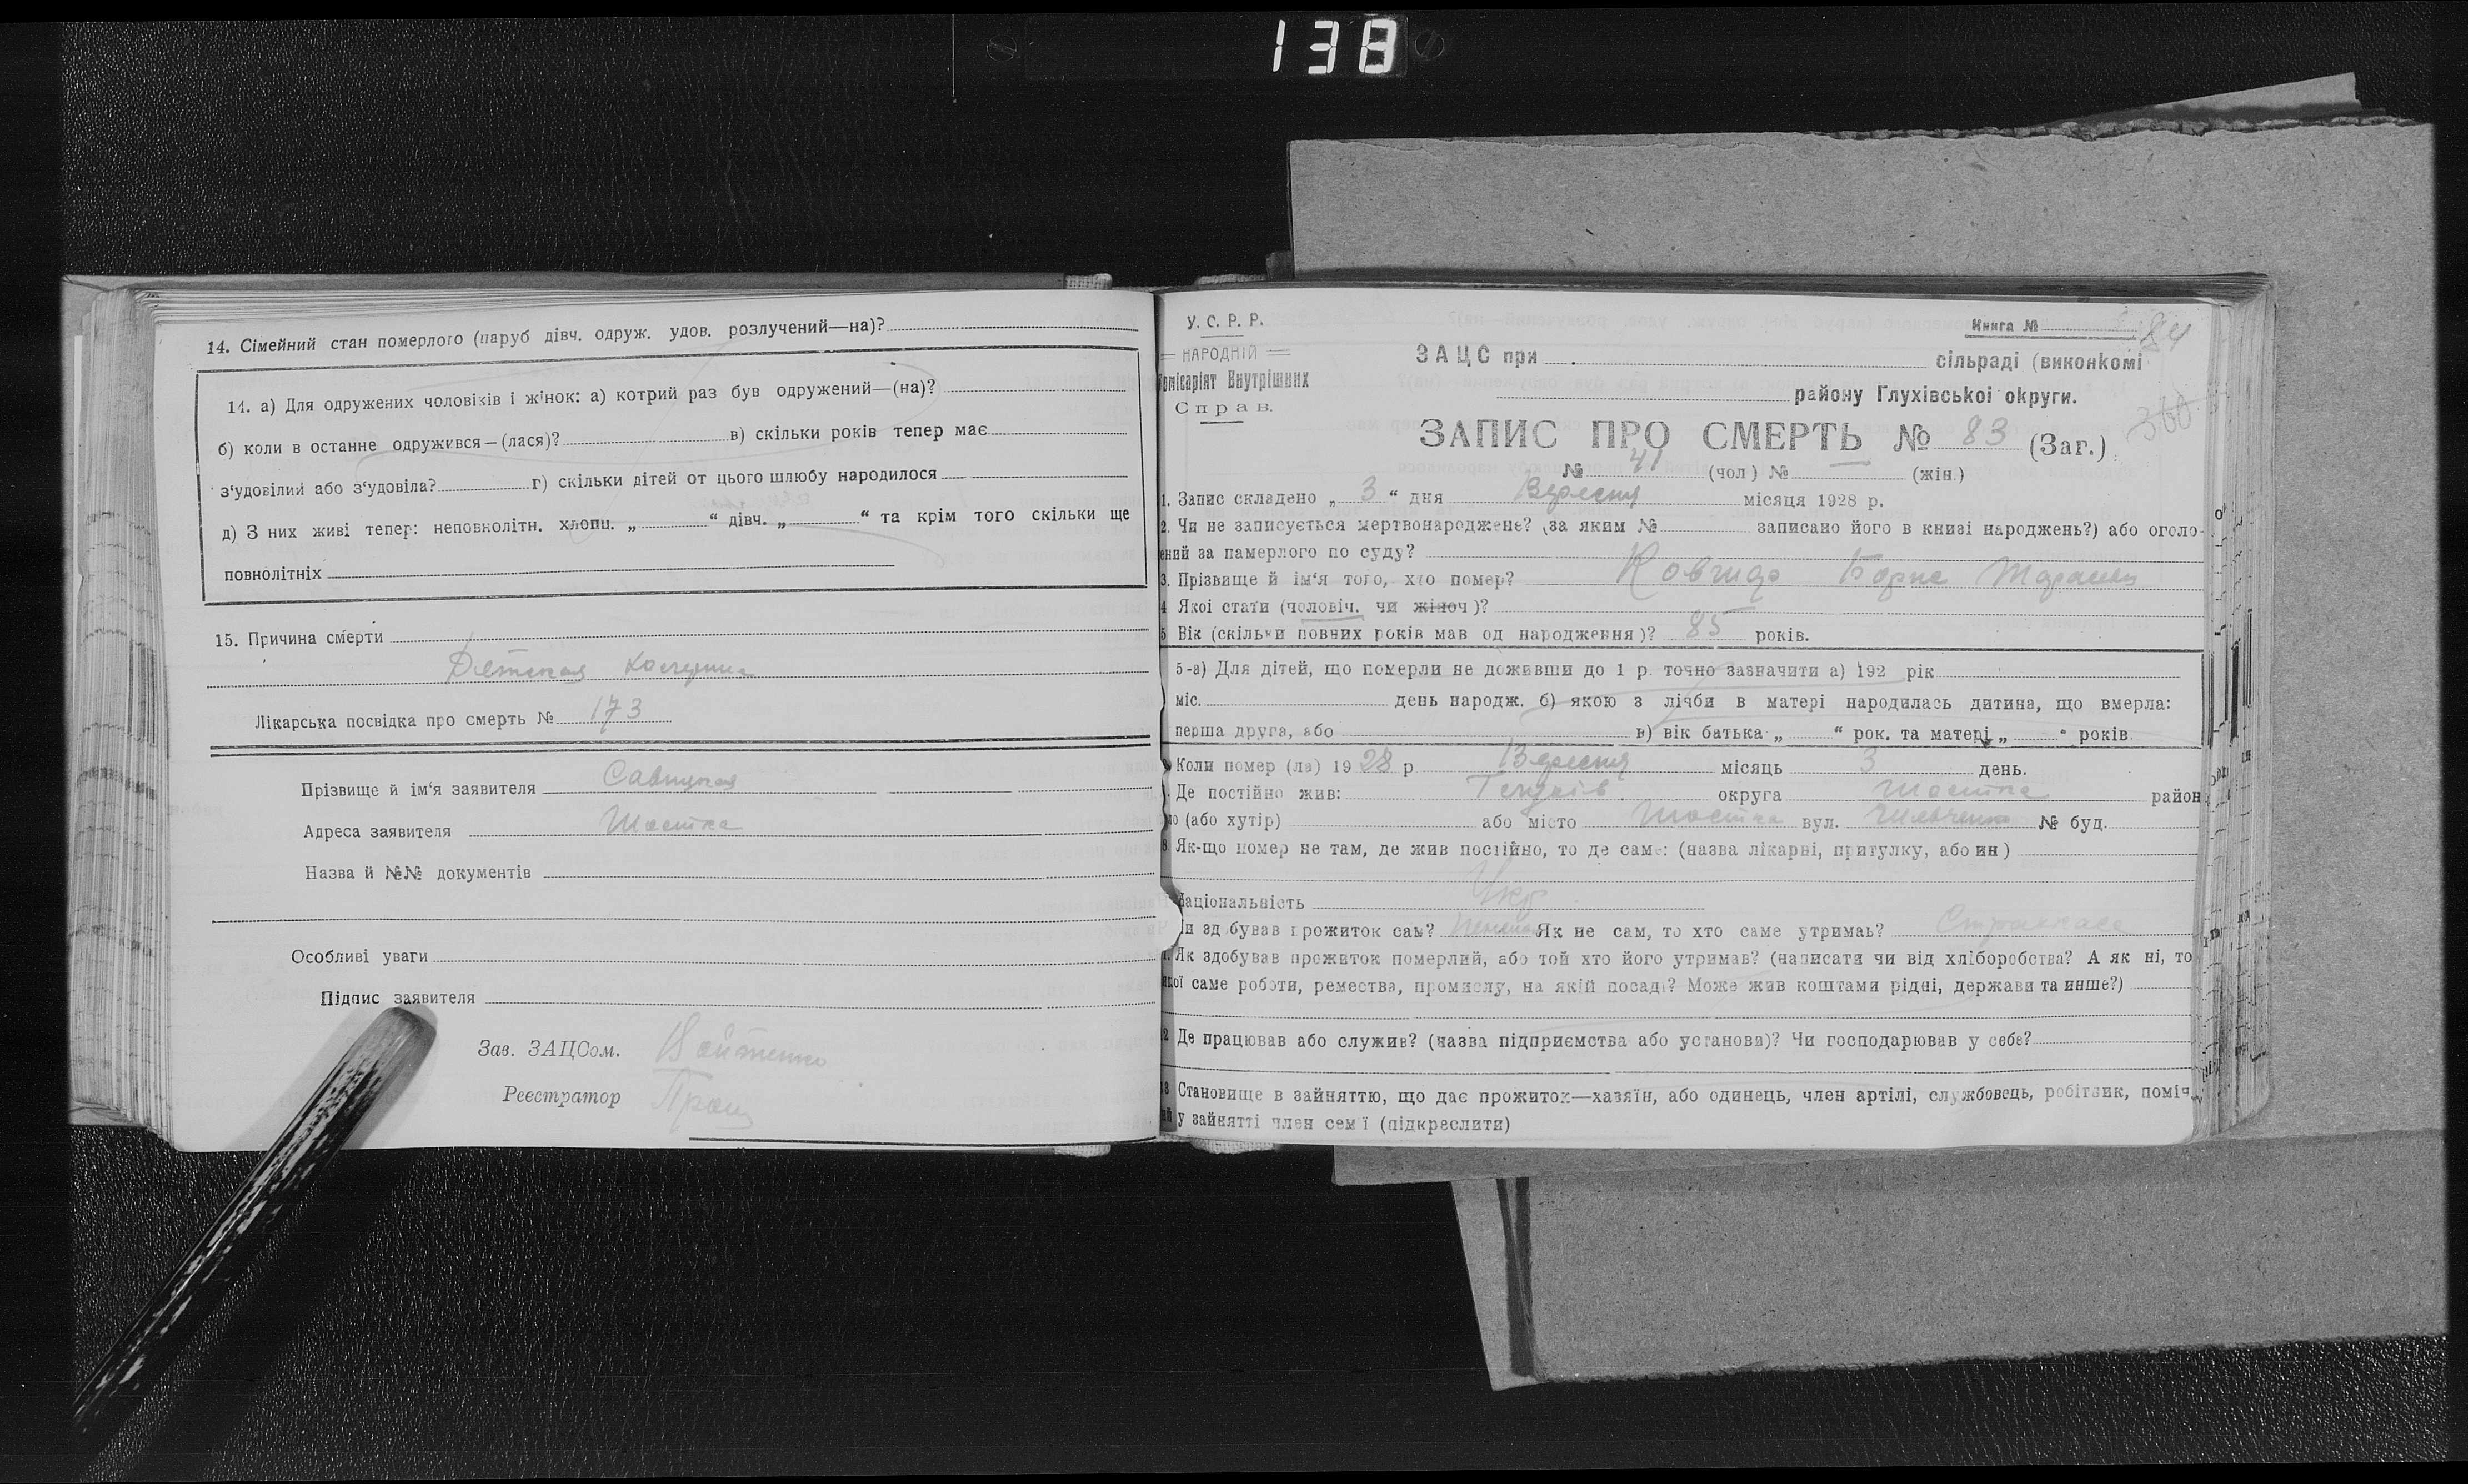 138
14. Сімейний стан померлого (паруб дівч. одруж. удов. розлучений—на)?
14. а) Для одружених чоловіків і жінок: а) котрий раз був одружений—(на)?
б) коли в останне одружився—(лася)? в) скільки років тепер має
з‘удовілий або з‘удовіла? г) скільки дітей от цього шлюбу народилося
д) З них живі тепер: неповнолітн. хлопц. „ “ дівч. „ “ та крім того скільки ще
повнолітніх
15. Причина смерти
Детская
Лікарська посвідка про смерть № 173
Прізвище й ім‘я заявителя Савицкая
Адреса заявителя Шостка
Назва й №№ документів
Особливі уваги
Підпис заявителя
Зав. ЗАЦСом. Войтенко
Реєстратор
У. С. Р. Р.
НАРОДНІЙ
Комісаріят Внутрішних
Справ.
Книга №
84
ЗАЦС при сільраді (виконкомі
району Глухівської округи.
360
ЗАПИС ПРО СМЕРТЬ № 83 (Заг.)
№ 41 (чол) № — (жін.)
1. Запис складено „ 3 “ дня Вересня місяця 1928 р.
2. Чи не записується мертвонароджене? (за яким № записано його в книзі народжень?) або оголо-
ений за памерлого по суду?
3. Прізвище й ім‘я того, хто помер? Борис
4 Якої стати (чоловіч. чи жіноч)?
5 Вік (скільки повних років мав од народження)? 85 років.
5-а) Для дітей, що померли не доживши до 1 р. точно зазначити а) 192 рік
міс. день народж. б) якою з лічби в матері народилась дитина, що вмерла:
перша друга, або в) вік батька „ “ рок. та матері „ “ років
Коли помер (ла) 1928 р Вересня місяць 3 день.
Де постійно жив: округа Шостка район
(або хутір) або місто Шостка вул. Шевченко № буд.
8 Як-що помер не там, де жив постійно, то де саме: (назва лікарні, притулку, або ин)
Національність Укр
Чи здобував прожиток сам? Як не сам, то хто саме утримав?
Як здобував прожиток померлий, або той хто його утримав? (написати чи від хліборобства? А як ні, то
якої саме роботи, ремества, промислу, на якій посаді? Може жив коштами рідні, держави та инше?)
12 Де працював або служив? (назва підприємства або установи)? Чи господарював у себе?
13 Становище в зайняттю, що дає прожиток—хазяїн, або одинець, член артілі, службовець, робітник, поміч.
у зайнятті член сем‘ї (підкреслити)